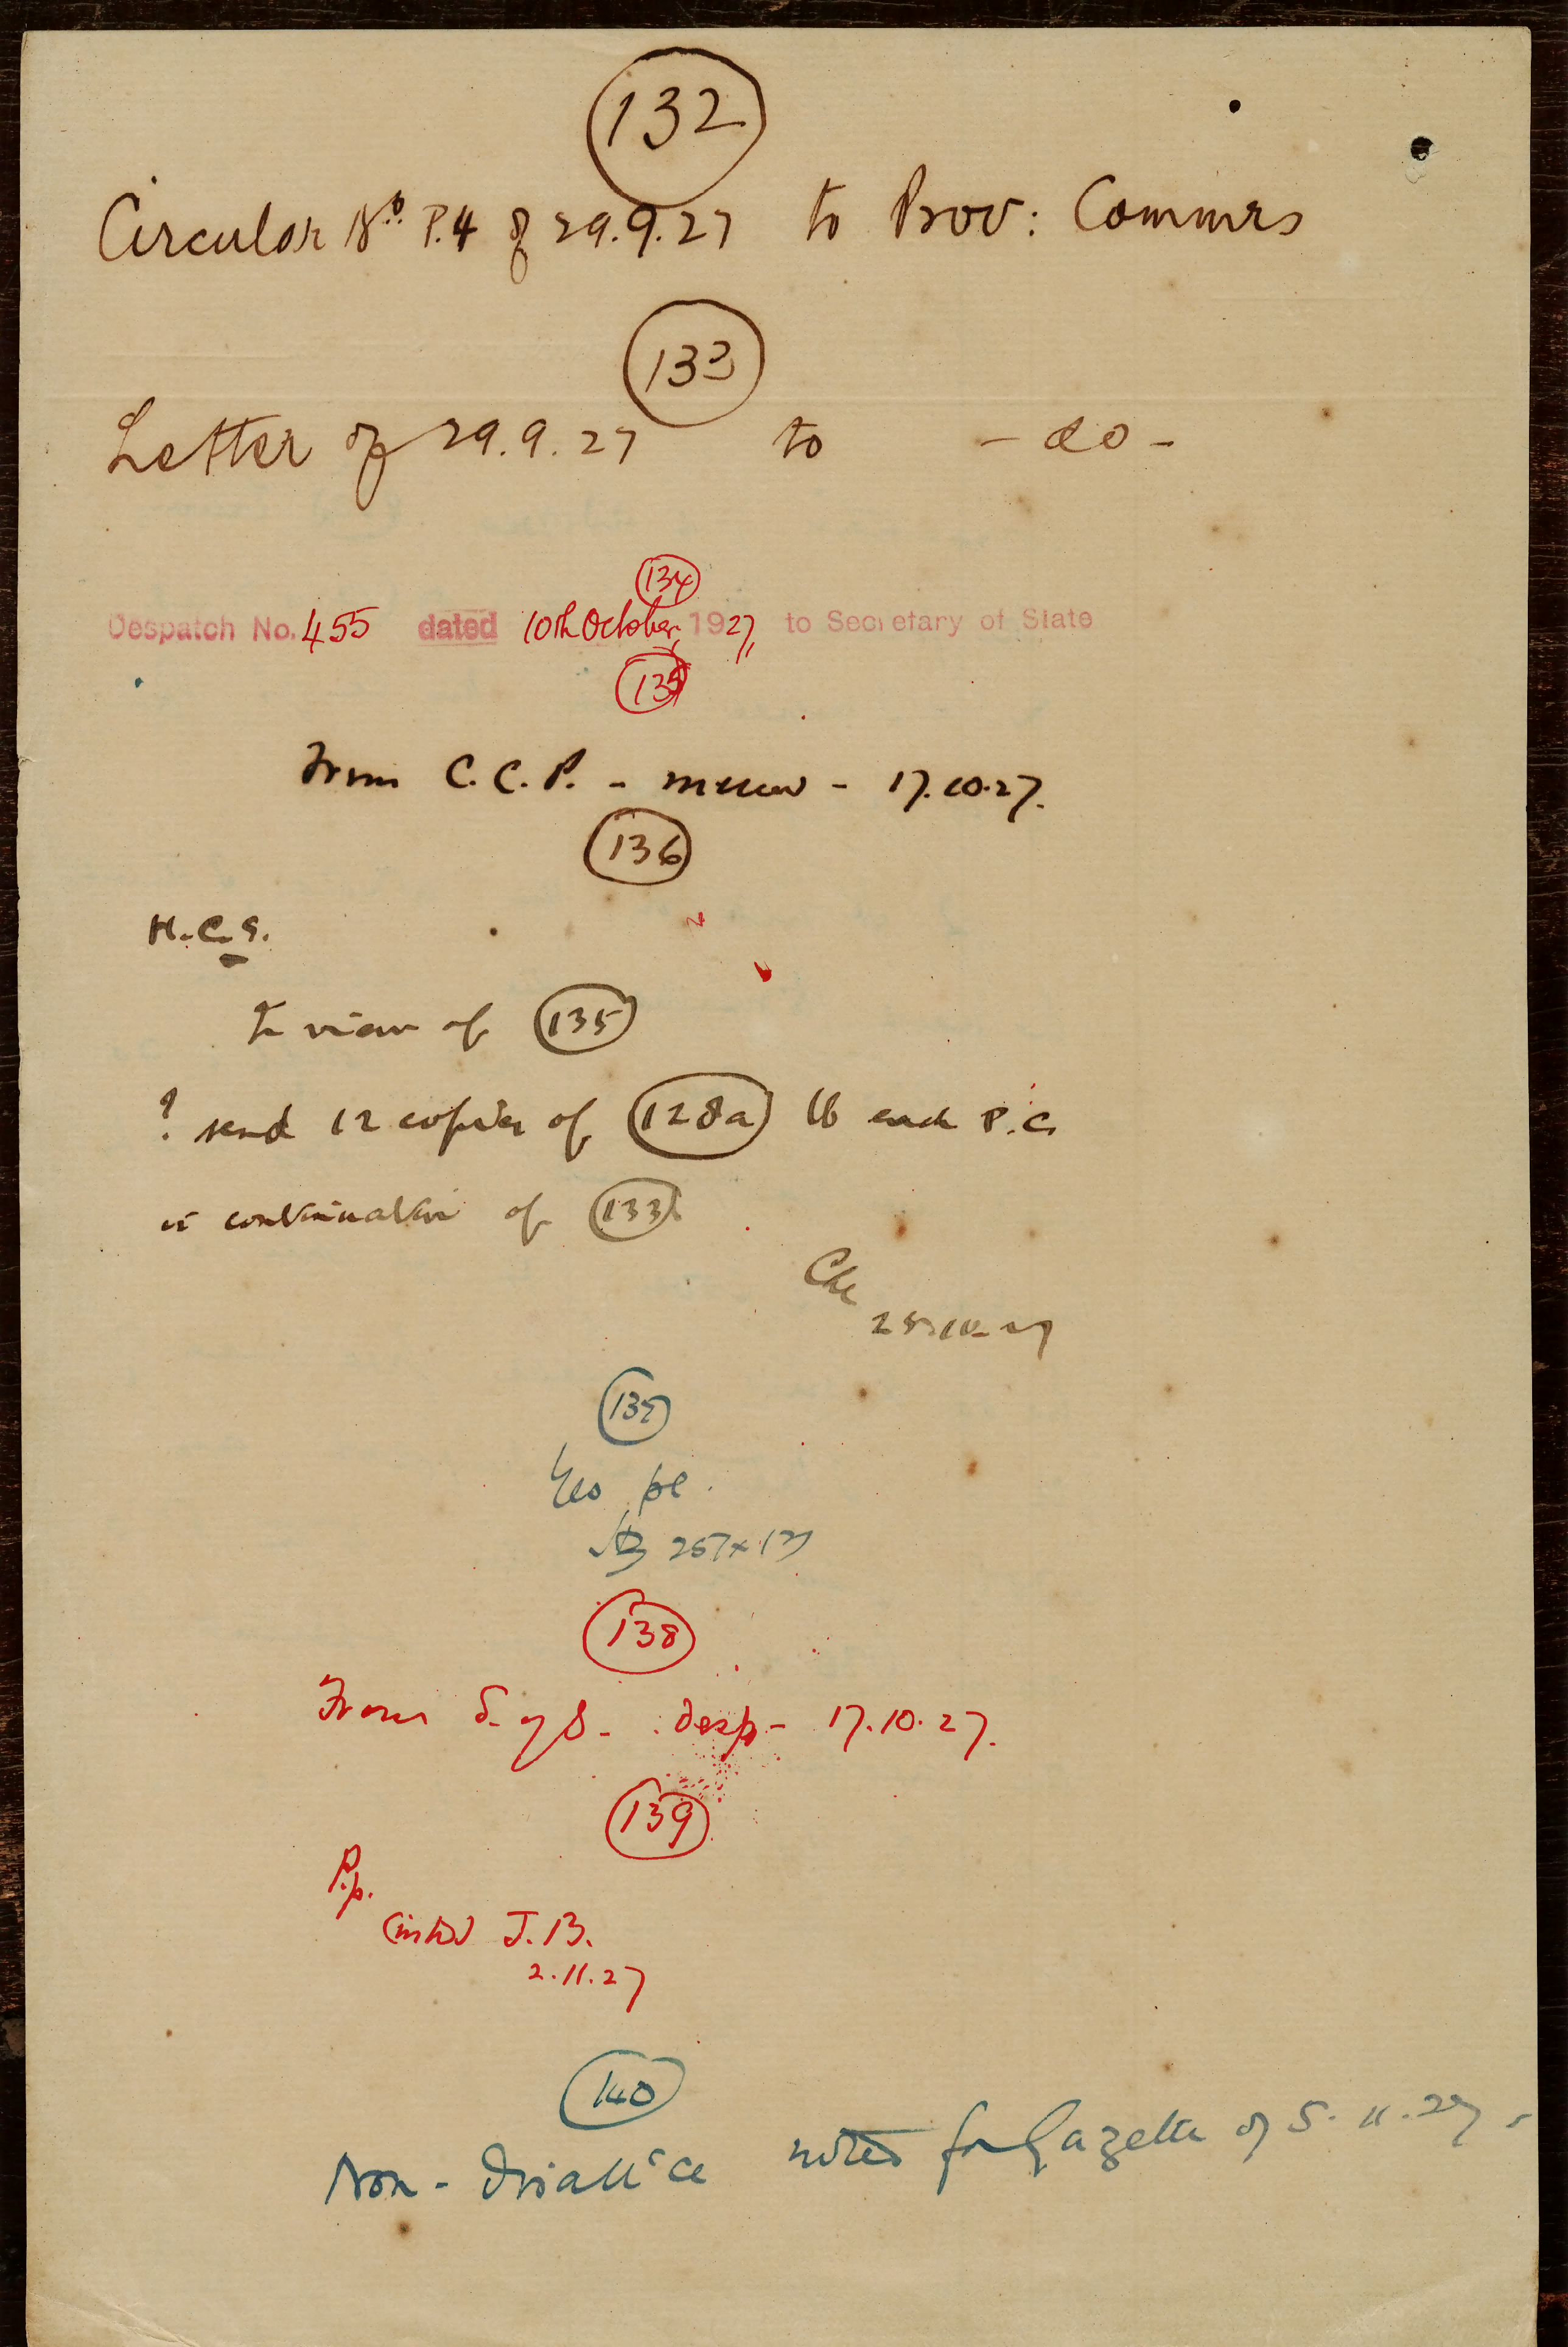 132
Circular No. P.4 of 29.9.27 to Prov: Commrs
133
Letter of 29.9.27 to - do -
134
Despatch No. 455 dated 10th October, 1927, to Secretary of State
135
From C.C.P. - memo - 17.10.27.
136
H.C.S.
In view of 135
? send 12 copies of 128a to each P.C.
in continuation of 133
137
Yes pl.
138
From S. of S. - desp - 17.10.27.
139
P.p.
(intd) J.B.
2.11.27
140
Non-disall'ce noted for Gazette of 5.11.27.